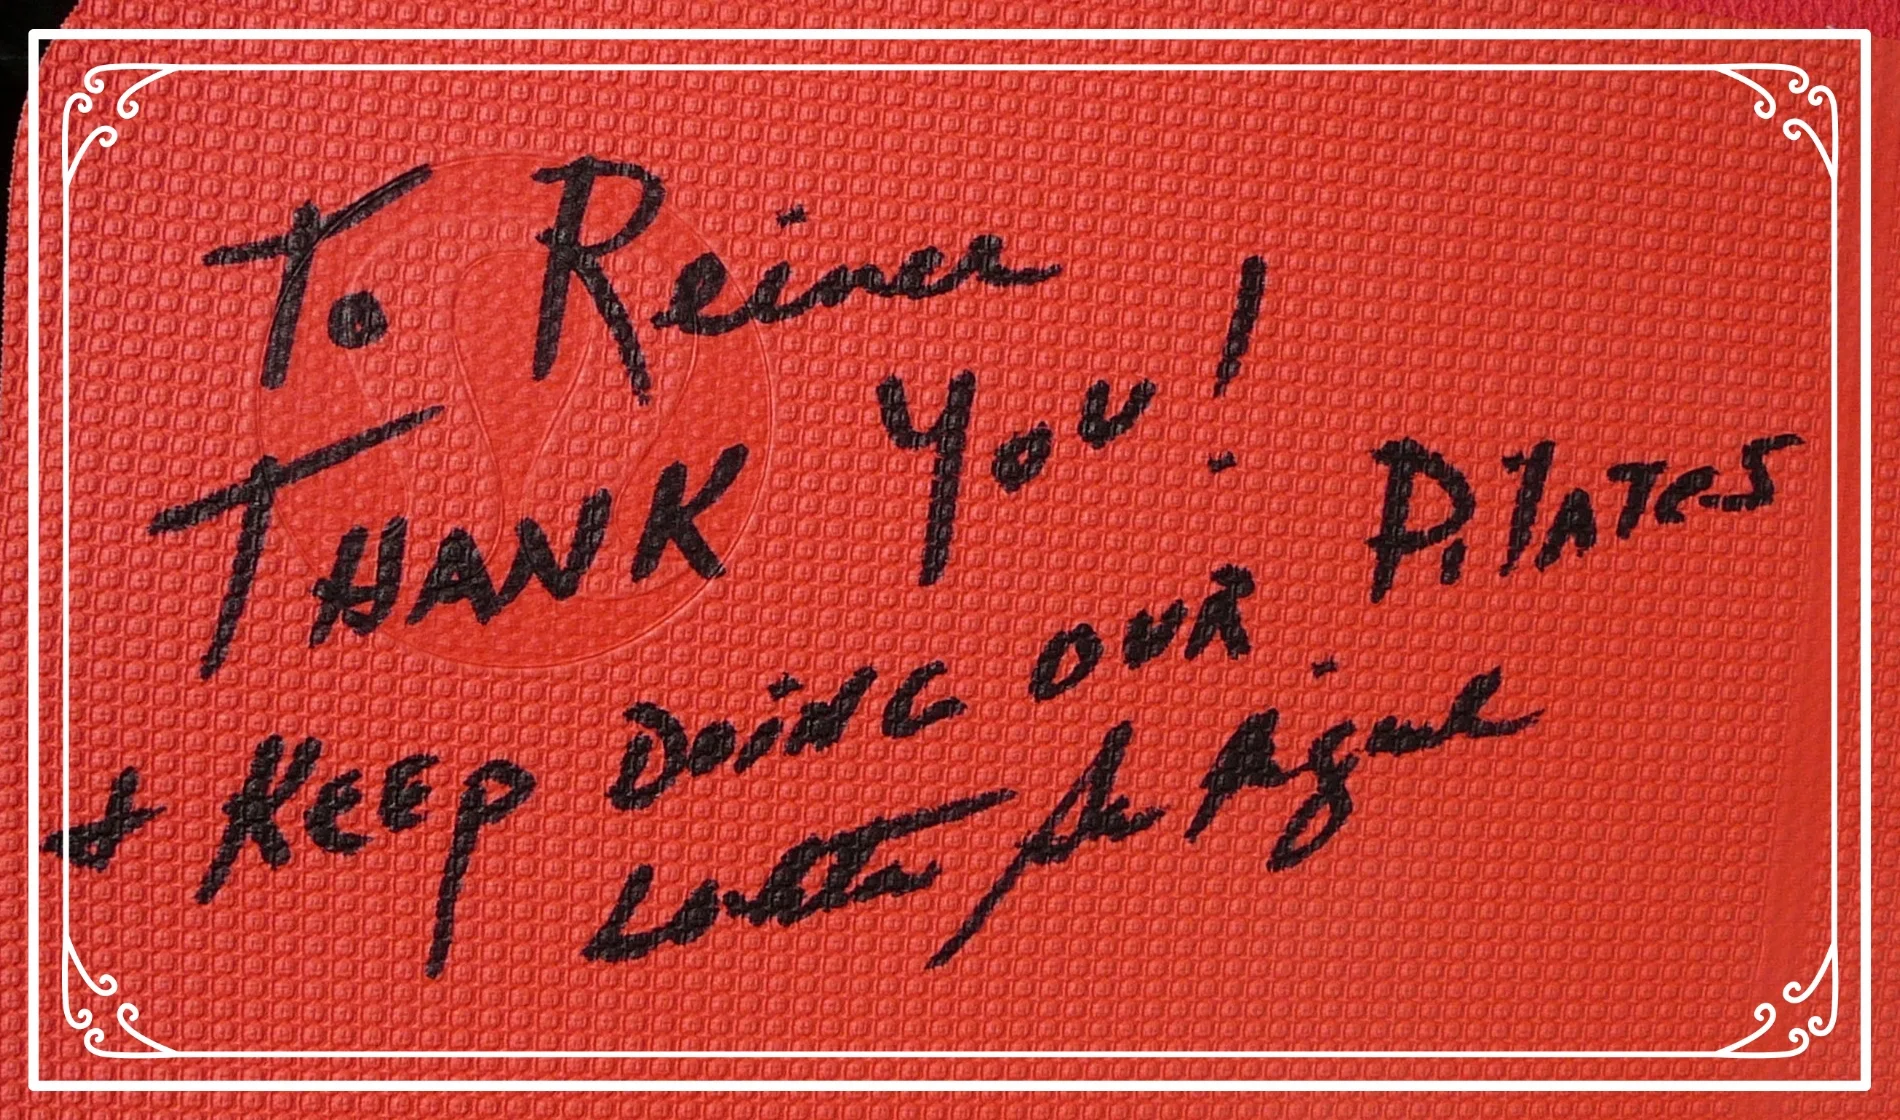 To Reiner
THANK YOU!
+ KEEP DOING OUR PilATES
Lolita San Miguel